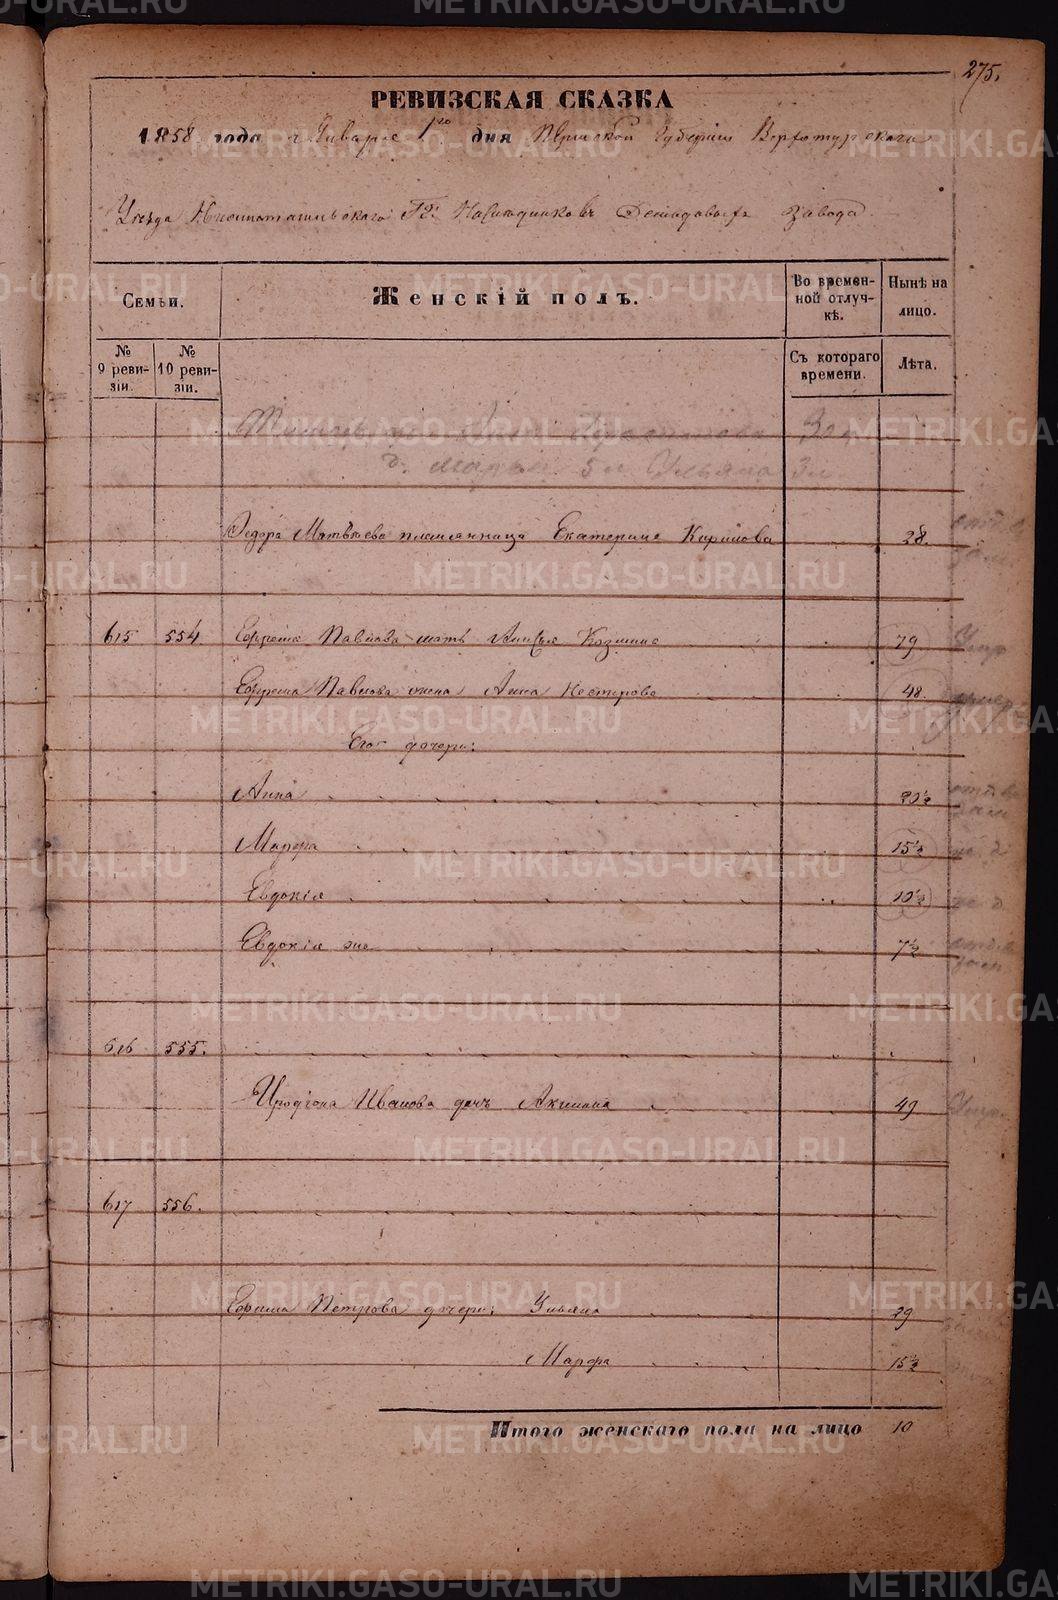 275.
РЕВИЗСКАЯ СКАЗКА
1858 года Января 1го дня Пермской Губернiи Верхотурскаго
Уезда Нижнотагильскаго Гг: Наследниковъ Демидовыхъ Завода
Семьи.
Женскiй полъ.
Во времен-
ной отлуч-
кѣ.
Нынѣ на
лицо.
№
9 реви-
зiи.
№
10 реви-
зiи.
Съ котораго
времени.
Лѣта.
Марья 5 л Ульяна 3 л
Федора Матвѣева племянница Екатерина Кирилова 28.
615 554 Ефрема Павлова мать Анисья Козмина 79 Умер
Ефрема Павлова жена Анна Нестерова 48. умер
Его дочери:
Анна 20½
Марфа 15½
Евдокiя 10½
Евдокiя же 7½
616 555.
Иродiона Иванова дочь Акилина 49 Умер.
617 556.
Ефима Петрова дочери: Ульяна 29
Марфа 15½
Итого женскаго пола на лицо 10
METRIKI.GASO-URAL.RU